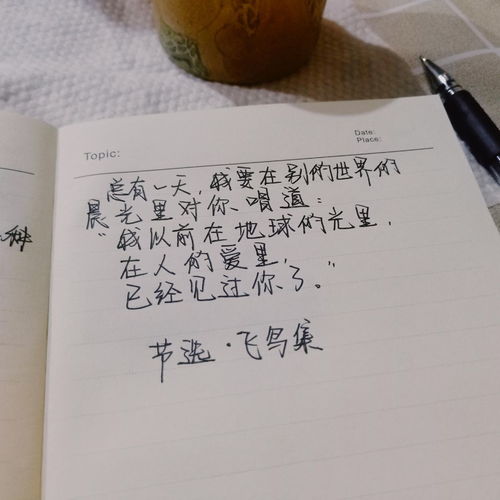 Date:
Place:
Topic:
总有一天,我要在别的世界的
晨光里对你唱道:
"我以前在地球的光里,
在人的爱里,
已经见过你了。"
节选·飞鸟集
种